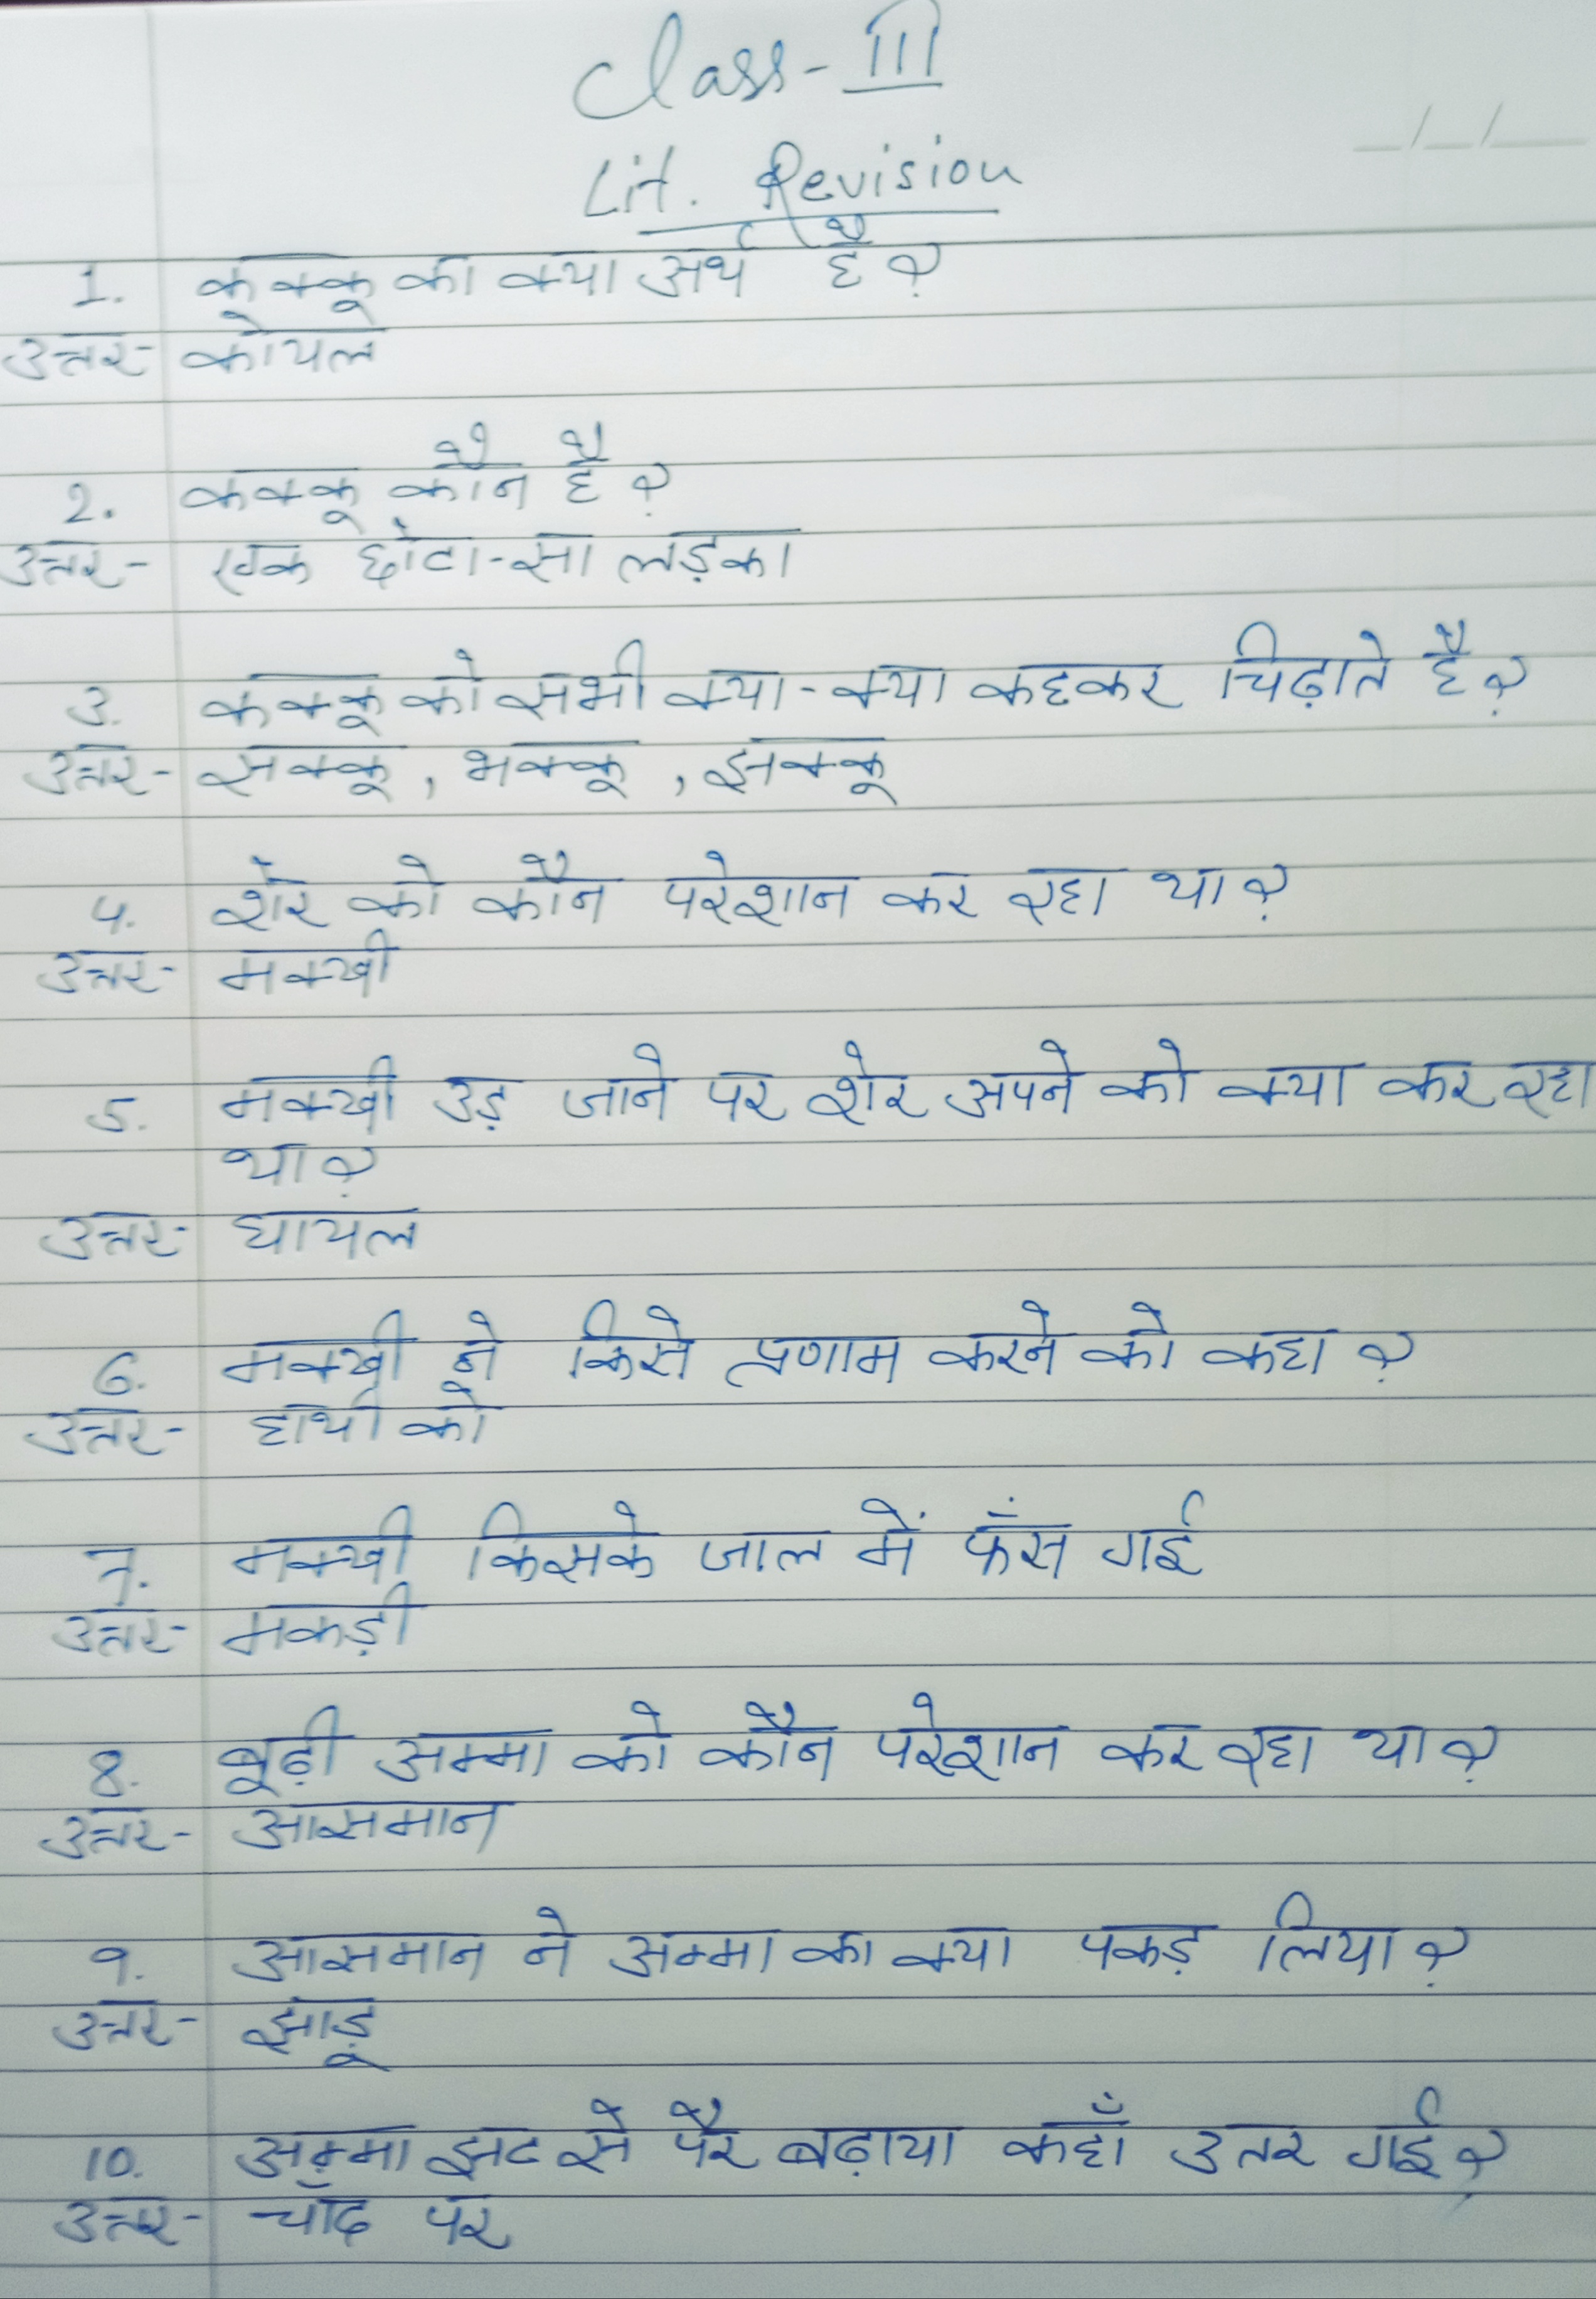 Class - III
Lit. Revision
1. कक्कू का क्या अर्थ है?
उत्तर- कोयल
2. कक्कू कौन है?
उत्तर- एक छोटा-सा लड़का
3. कक्कू को सभी क्या-क्या कहकर चिढ़ाते है?
उत्तर- सक्कू, भक्कू, झक्कू
4. शेर को कौन परेशान कर रहा था?
उत्तर- मक्खी
5. मक्खी उड़ जाने पर शेर अपने को क्या कर रहा
था?
उत्तर- घायल
6. मक्खी ने किसे प्रणाम करने को कहा?
उत्तर- हाथी को
7. मक्खी किसके जाल में फँस गई
उत्तर- मकड़ी
8. बूढ़ी अम्मा को कौन परेशान कर रहा था?
उत्तर- आसमान
9. आसमान ने अम्मा का क्या पकड़ लिया?
उत्तर- झाड़ू
10. अम्मा झट से पैर बढ़ाया कहाँ उतर गई?
उत्तर- चाँद पर